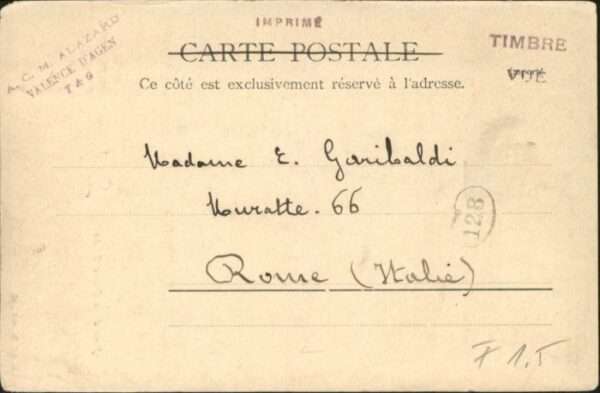 IMPRIMÉ
A. C. M. ALAZARD
VALENCE D'AGEN
T & G
CARTE POSTALE
Ce côté est exclusivement réservé à l'adresse.
TIMBRE
VUE
Madame E. Garibaldi
Muratte. 66
128
Rome (Italie)
F 1,5